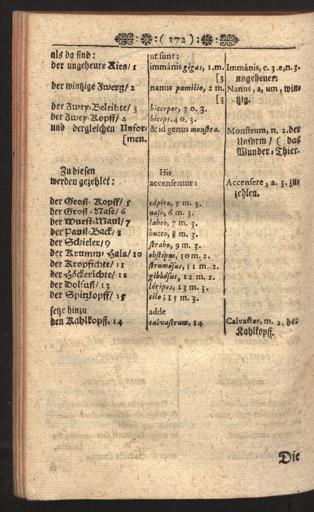 :( 172 ):
als da sind: ut sunt:
der ungeheure Ries/ 1 immánis gigas, 1. m. Immánis, c. 3. e, n. 3.
[3 ungeheuer.
der wintzige Zwerg/ 2 nanus pumilio, 2 m. Nanus, a, um, win-
[3 tzig.
der Zwey-Beleibte/ 3 bicorpor, 3 o. 3.
der Zwey-Kopff/ 4 biceps, 4 o. 3.
und dergleichen Unfor- & id genus monstra. Monstrum, n. 2. der
[men. Unform / (das
Wunder-Thier.
Zu diesen His
werden gezehlet: accensentur: Accensere, a. 2. zu-
zehlen.
der Groß-Kopff/ 5 capito, 5 m. 3.
der Groß-Nase/ 6 naso, 6 m. 3.
der Wurst-Maul/ 7 labeo, 7 m. 3.
der Paus-Back/ 8 bucco, 8 m. 3.
der Schieler/ 9 strabo, 9 m. 3.
der Krumm-Hals/ 10 obstipus, 10 m. 2.
der Kropfichte/ 11 strumósus, 11 m. 2.
der Höckerichte/ 12 gibbósus, 12 m. 2.
der Dolfuß/ 13 lóripes, 13 m. 3.
der Spitzkopff/ 15 cilo; 15 m. 3.
setze hinzu adde
den Kahlkopff. 14 calvastrum. 14 Calvaster, m. 2. der
Kahlkopff.
Die